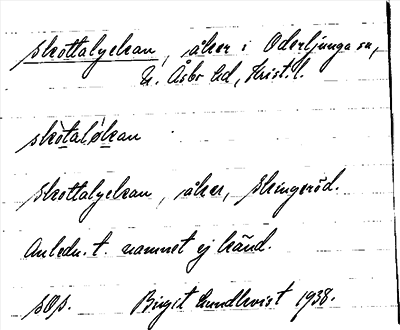 Skottalyckan, åker i Oderljunga sn,
N. Åsbo hd, Krist. l.
skòtalỳkan
Skottalyckan, åker, Skingeröd.
Anledn. t. namnet ej känd.
sOs. Birgit Lundkvist 1938.